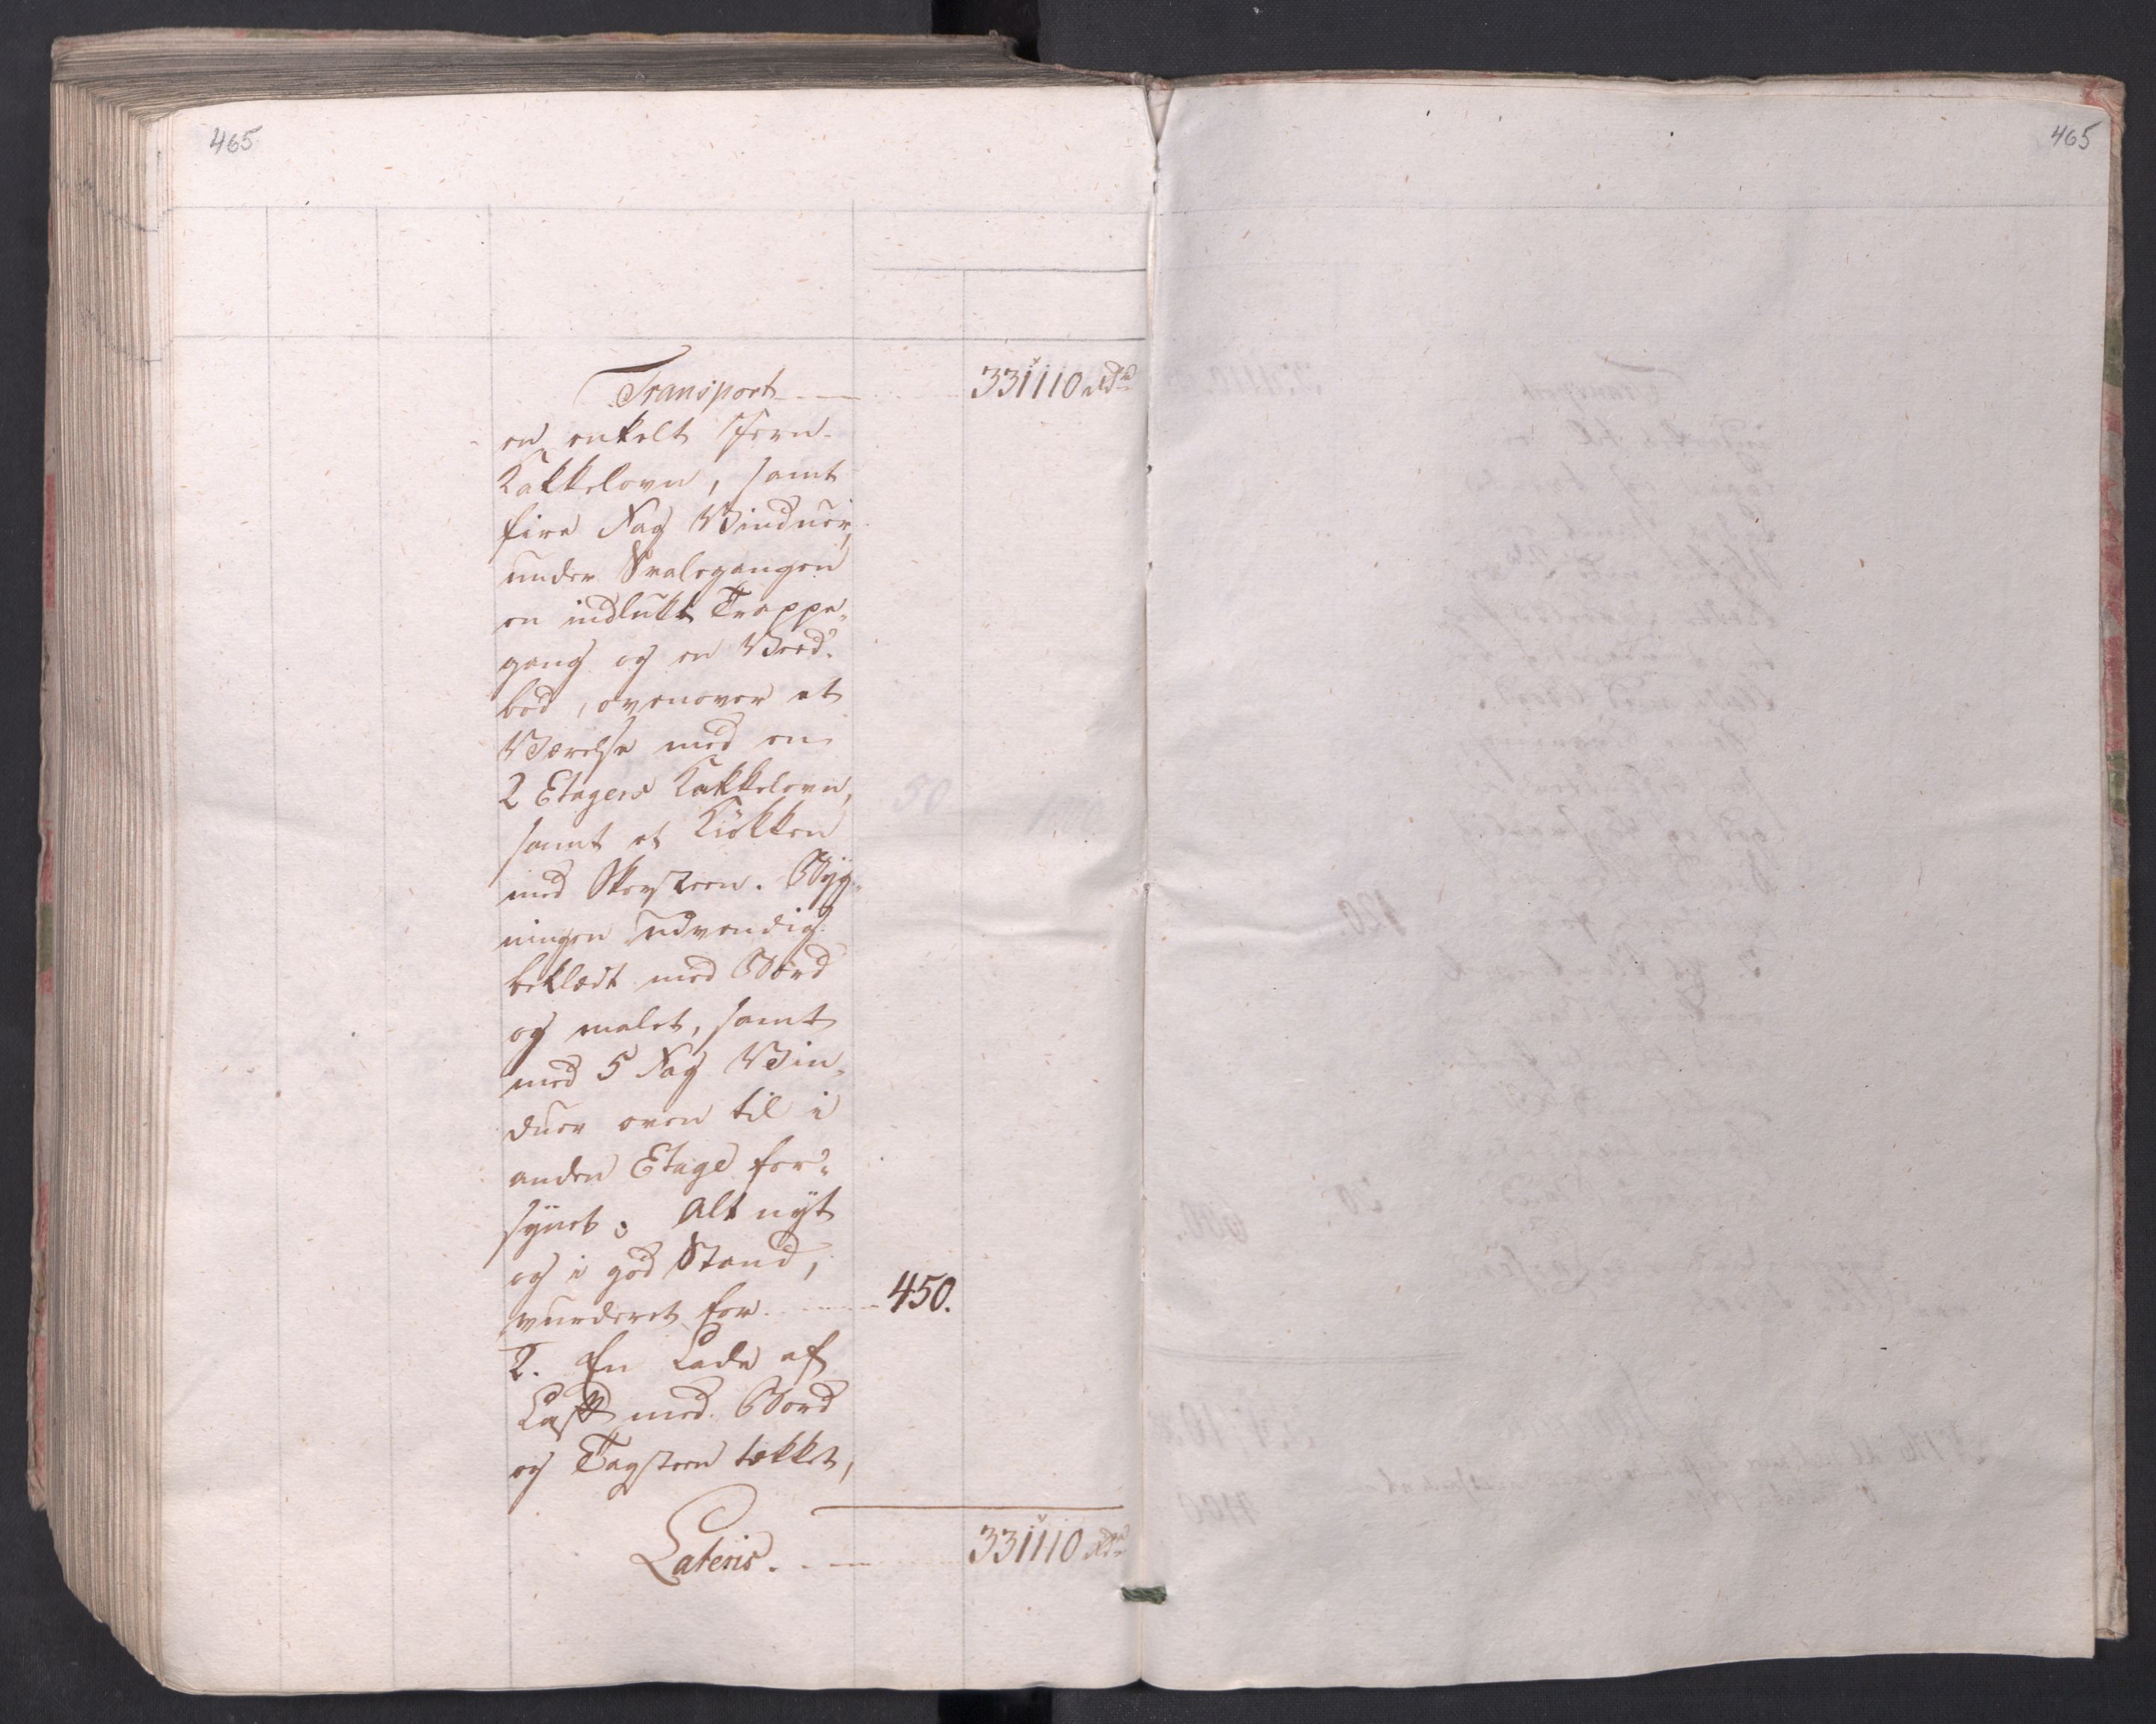 465
465
Transport 331110 rd
en enkelt Jern-
Kakkelovn, samt
fire Fag Vinduer,
under Svalegangen
en indlukt Trappe-
gang og en Ved-
bod, ovenover et
Værelse med en
2 Etagers Kakkelovn,
samt et Kiökken
med Skorsteen. Byg-
ningen udvendig
beklædt med Bord
og malet, samt
med 5 Fag Vin-
duer oven til i
anden Etage for-
synet; Alt nyt
og i god Stand,
vurderet for 450.
2. En Lade af
med Bord
og Tagsteen tækket,
Lateris. 331110 rd